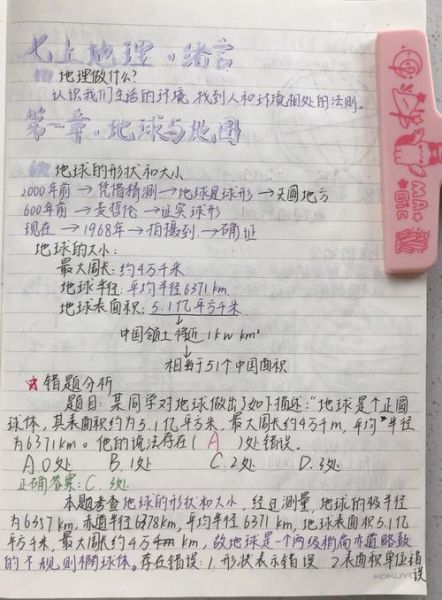 七上地理。绪言
地理做什么?
认识我们生活的环境,找到人和环境相处的法则。
第一章.地球与地图
地球的形状和大小
2000年前→凭借猜测→地球是球形→天圆地方
600年前→麦哲伦→证实球形
现在→1968年→拍摄到→确证
地球的大小:
最大周长:约4万千米
地球半径:平均半径6371km
地球表面积:5.1亿平方千米
中国领土接近1kw km²
相当于51个中国面积
★错题分析
题目:某同学对地球做出了如下描述:"地球是个正圆
球体,其表面积约为5.1亿平方米,最大周长约4万千m,平均半径"
为6371km。他的说法存在(A)处错误。
A.0处 B.1处 C.2处 D.3处
正确答案:C.
本题考查地球的形状和大小,经过测量,地球的极半径
为6357km,赤道半径6378km,平均半径6371km,地球表面积5.1亿
平方千米,最大周长约4万千m,故地球是一个两级稍扁赤道略鼓
的不规则椭球体。存在错误:1.形状表示错误 2.表面积单位错
误
KOKUYO
MAGiC